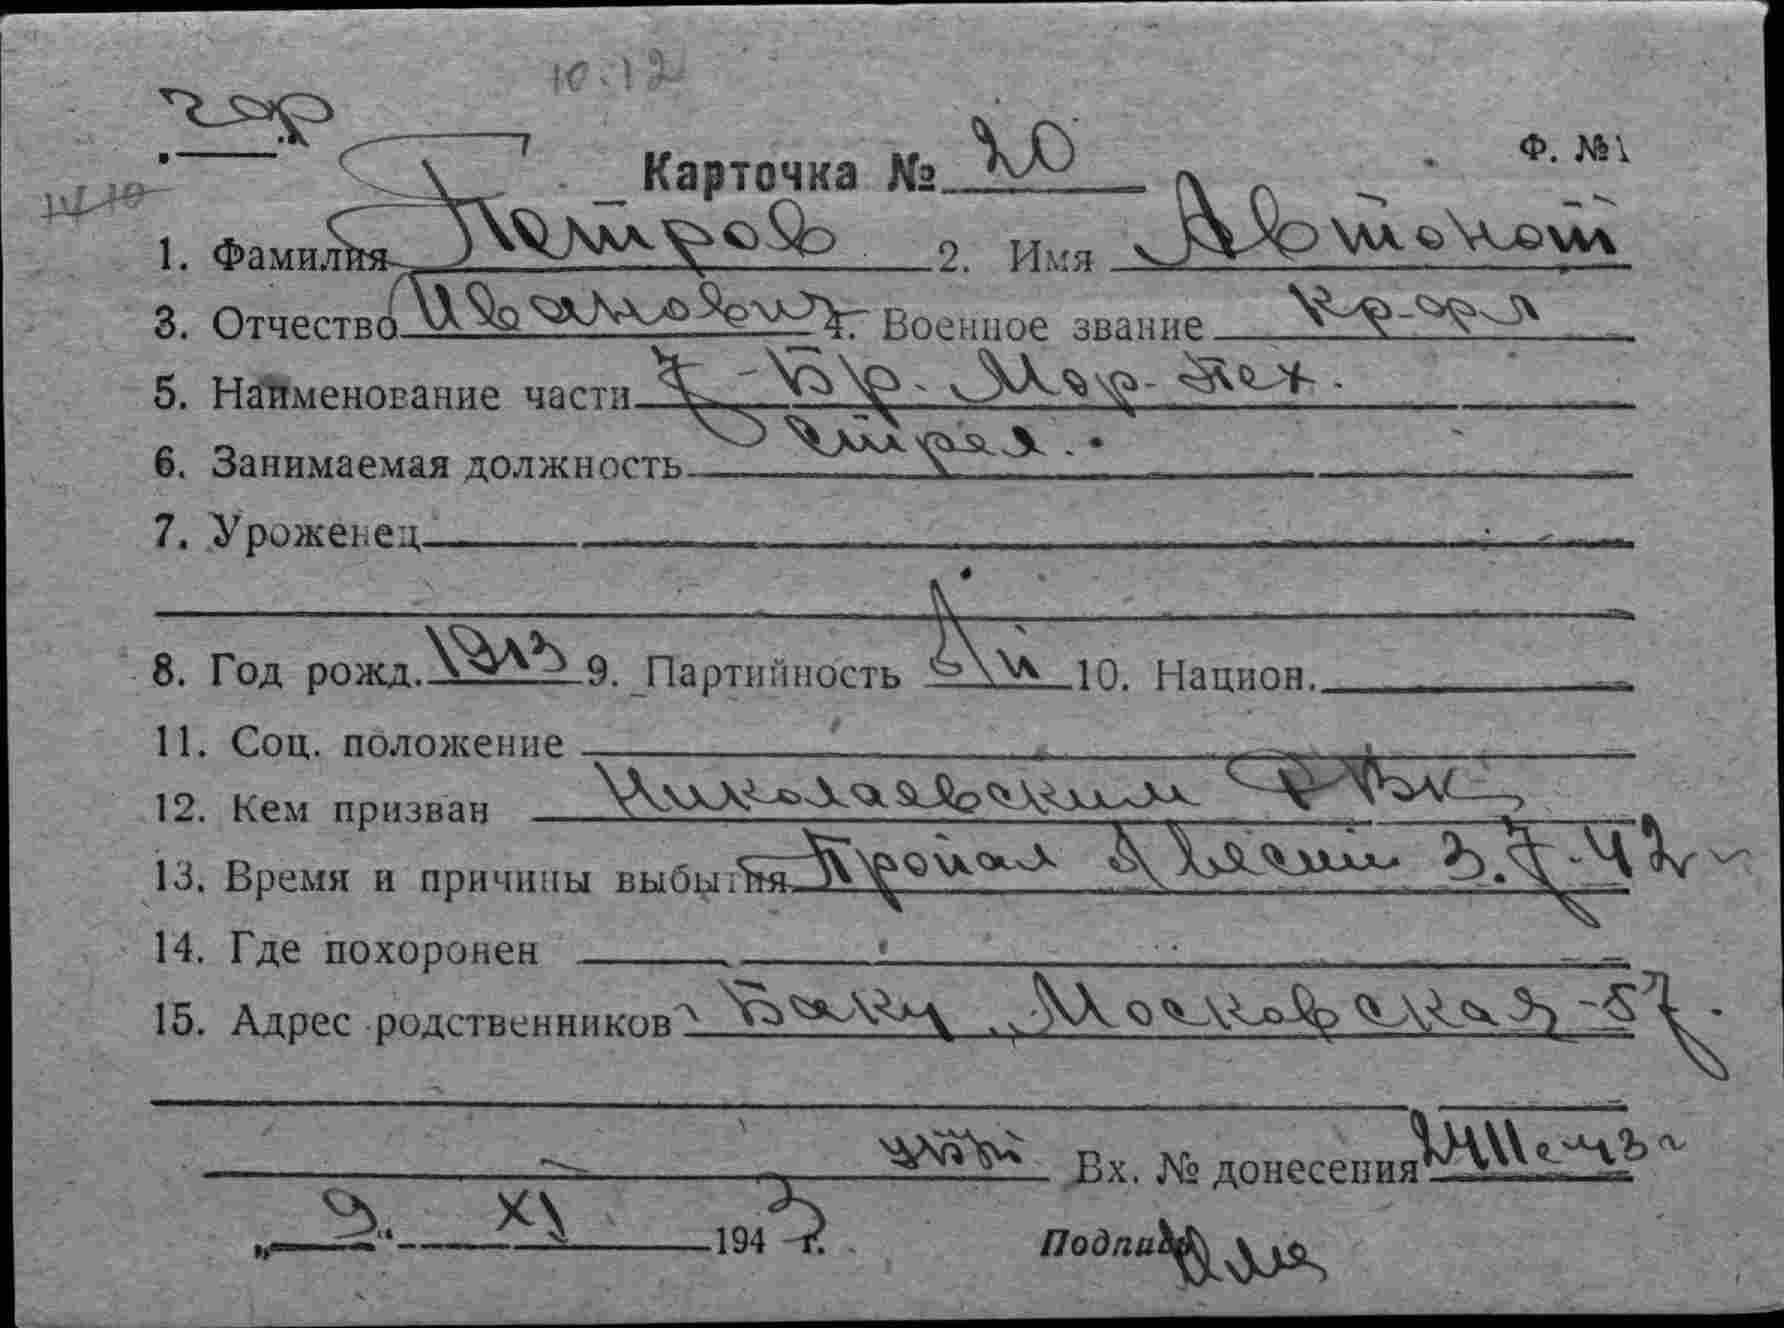 10.12
Карточка № 20
Ф. №1
1. Фамилия Петров 2. Имя Автоном
3. Отчество Иванович 4. Военное звание Кр-фл
5. Наименование части 7-Бр. Мор-Пех.
6. Занимаемая должность стрел.
7. Уроженец
8. Год рожд. 1913 9. Партийность 10. Национ.
11. Соц. положение
12. Кем призван Николаевским РВК
13. Время и причины выбытия Пропал без вести 3.7-42
14. Где похоронен
15. Адрес родственников Баку, Московская-57.
Вх. № донесения
„ 9. “ XI 1943 г. Подпись